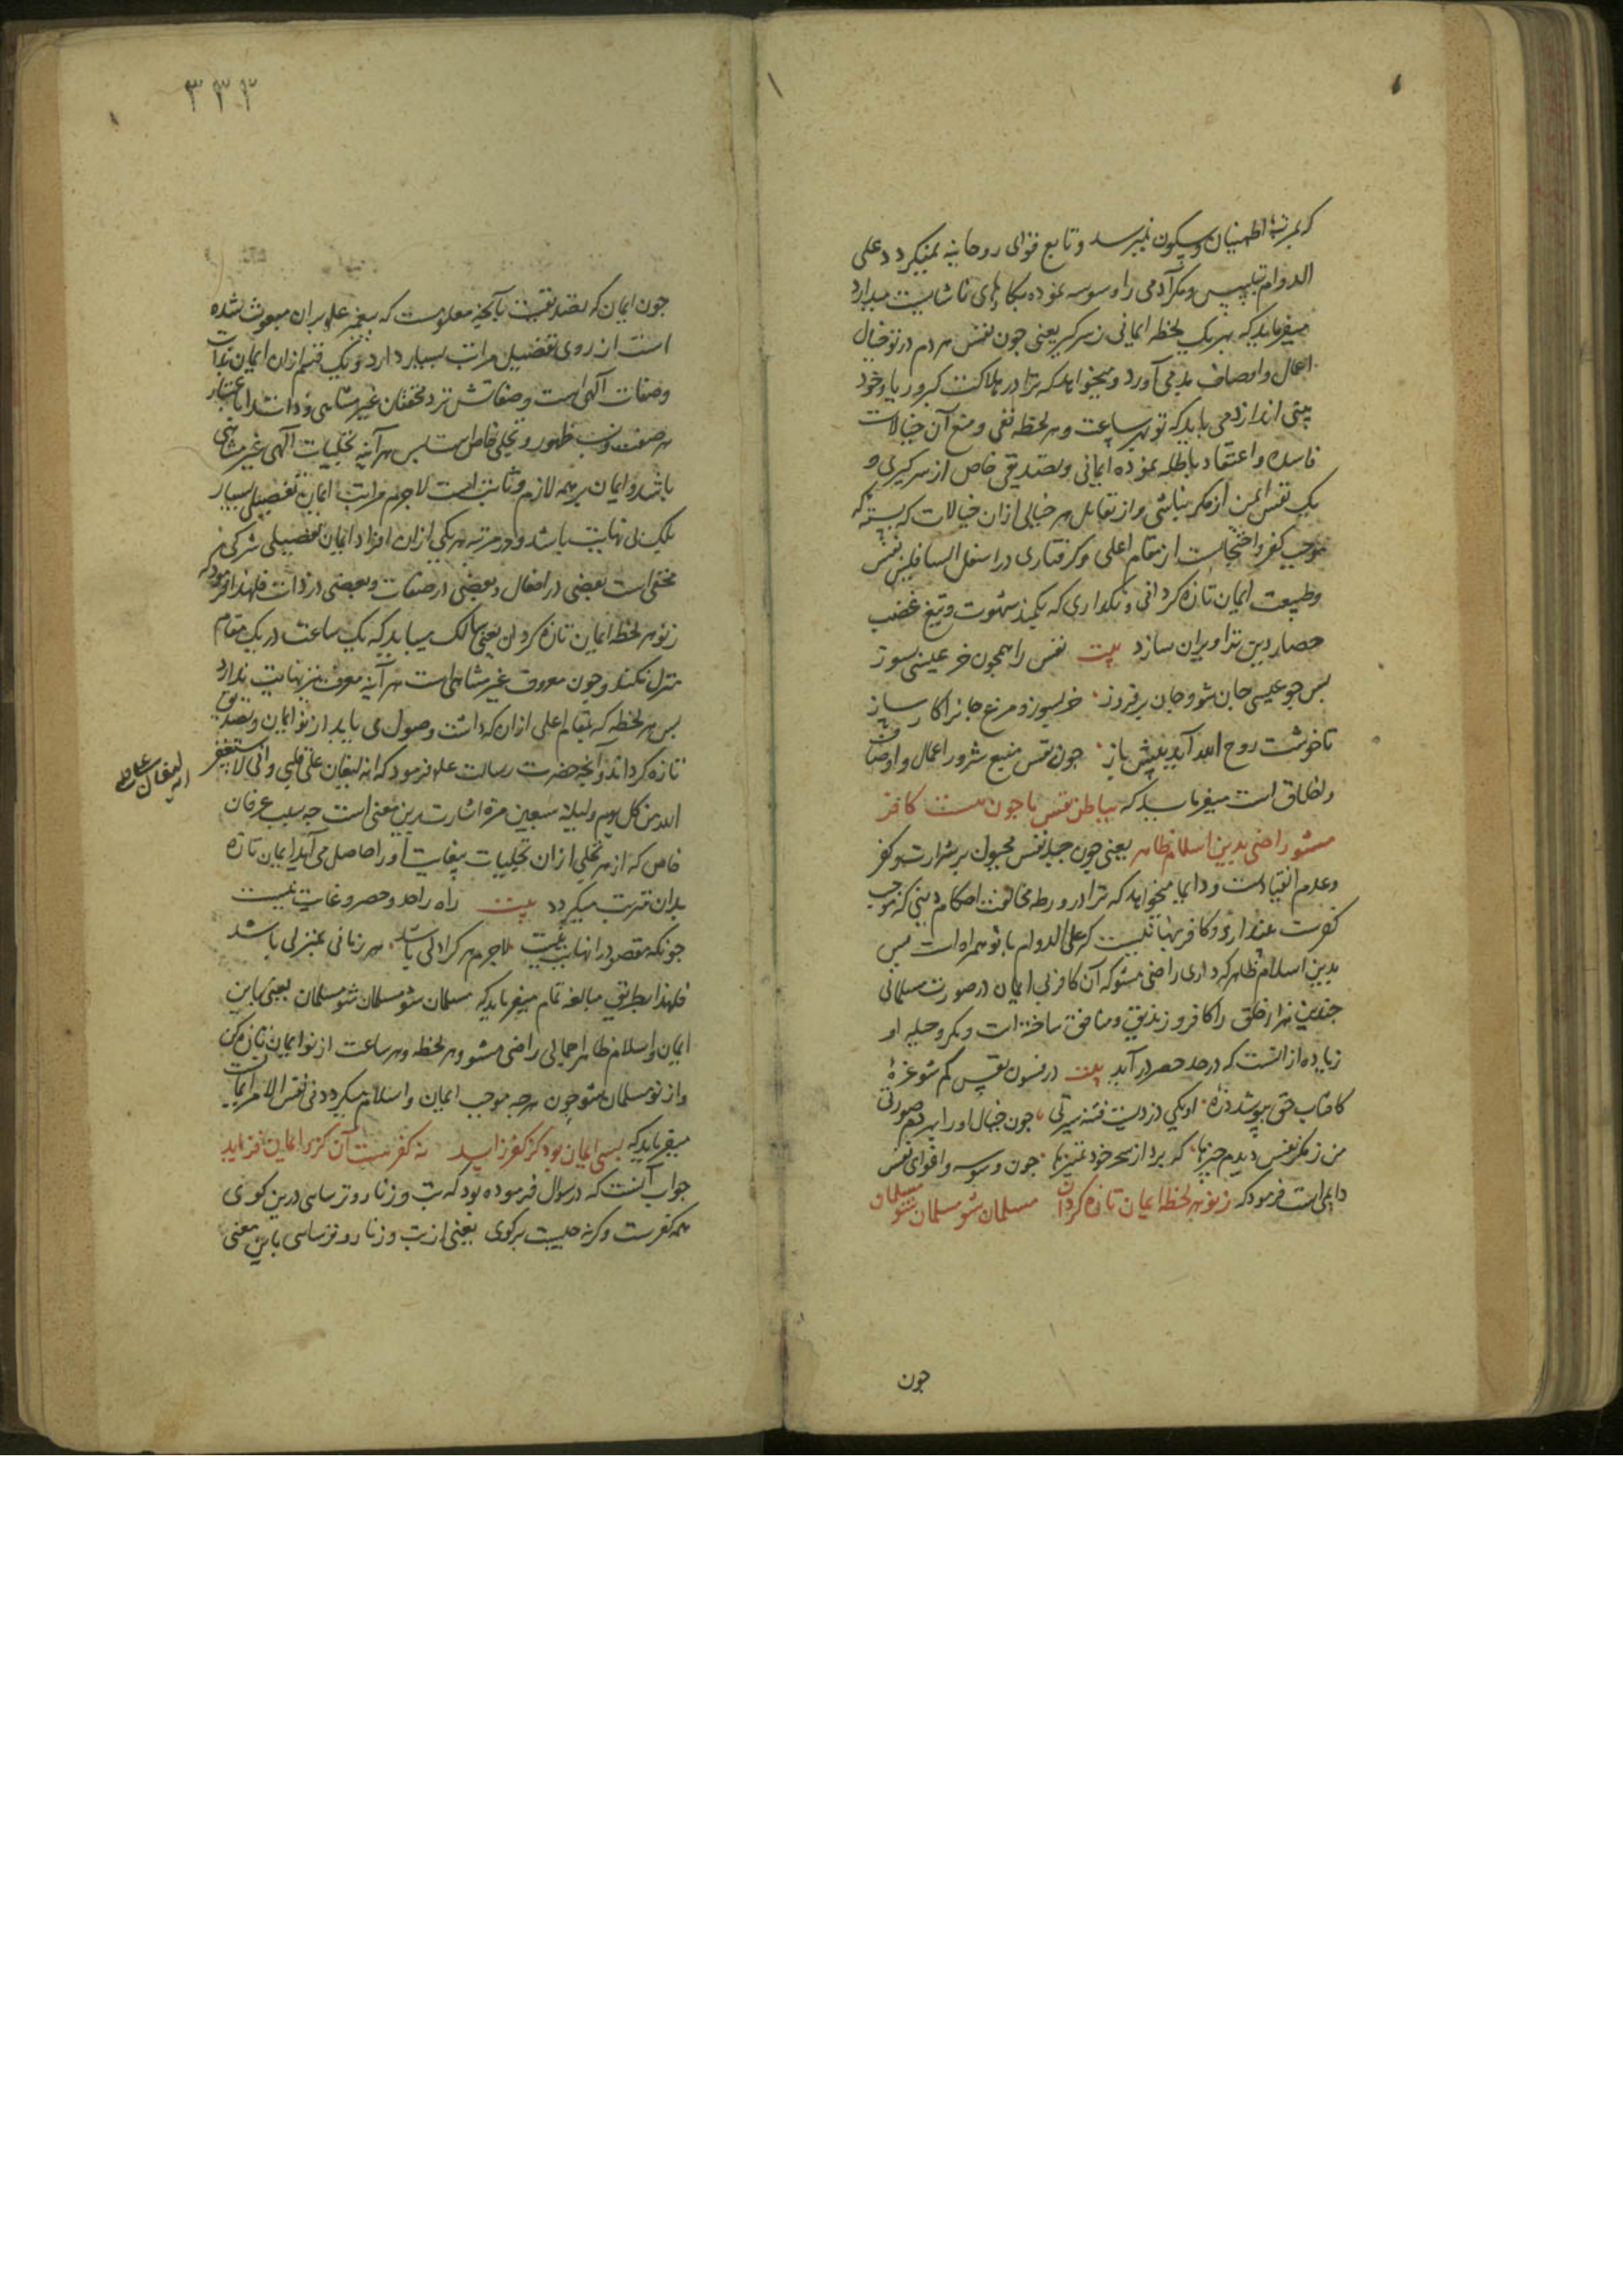 که بمرتبهٔ اطمینان و سکون نمیرسد و تابع قوای روحانیه نمیگردد علی
الدوام تلبیس و مکر آدمی را وسوسه نموده بکارهای ناشایست میدارد
میفرماید که بهر یک لحظه ایمانی ز سر گیر یعنی چون نفس هر دم در تو خیال
اعمال و اوصاف بد می آورد و میخواهد که ترا در هلاکت کبر و ریا و خود
بینی اندازد می باید که تو بهر ساعت و هر لحظه نفی و منع آن خیالات
فاسده و اعتقاد باطله نموده ایمانی و تصدیقی خاص از سر گیری و
یک نفس ایمن از مکر نباشی و از تقابل هر خیالی ازان خیالات که
موجب کفر و احتجابست از مقام اعلی و گرفتاری در اسفل السافلین نفس
و طبیعت ایمان تازه گردانی و نگذاری که بکمند شهوت و تیغ غضب
حصار دین ترا ویران سازد بیت نفس را همچون خر عیسی بسوز
پس چو عیسی جان شو و جان برفروز خر بسوز و مرغ جانرا کار ساز
تا خوشت روح الله آید پیش باز چون نفس منبع شرور اعمال و اوصاف
و اخلاق است میفرماید که بباطن نفس ما چون هست کافر
مشو راضی بدین اسلام ظاهر یعنی چون جبلت نفس مجبول بر شرارت و کفر
و عدم انقیادست و دایما میخواهد که ترا در ورطه مخالفت احکام دینی که موجب
کفرست عند اری و کافر نهانیست که علی الدوام با تو همراه است پس
بدین اسلام ظاهر که داری راضی مشو که آن کافر بی ایمان در صورت مسلمانی
چندین هزار خلق را کافر و زندیق و منافق ساخته است و مکر و حیله او
زیاده از انست که در حد حصر در آید بیت در فسون نفس کم شو غرهٔ
کافتاب حق بپوشد ذرهٔ او یکی دزدیست فتنه سیرتی چون خیال او را بهر دم صورتی
من ز مکر نفس دیدم چیزها که برد از سحر خود تمییزها چون وسوسه و اغوای نفس
دایمی است فرمود که ز نو هر لحظه ایمان تازه گردان مسلمان شو مسلمان شو مسلمان
چون
۳۳۲
چون ایمان که تصدیقیست بآنچه معلومست که پیغمبر علم بران مبعوث شده
است از روی تفضیل مراتب بسیار دارد و یک قسم ازان ایمان بذات
و صفات آلهی است و صفاتش نزد محققان غیر متناهی و ذات را باعتبار
هر صفت و نسب ظهور و تجلی خاص است پس هر آینه تجلیات آلهی غیر متناهی
باشد و ایمان بر همه لازم و ثابت است لاجرم مراتب ایمان تفصیلی بسیار
بلک بی نهایت باشد و در مرتبه هر یکی ازان افراد ایمان تفصیلی شرکی
مخفی است بعضی در افعال و بعضی در صفات و بعضی در ذات فلهذا فرمود که
ز نو هر لحظه ایمان تازه گردان یعنی سالک میباید که یک ساعت در یک مقام
منزل نکند و چون معروف غیر متناهی است هر آینه معرفت نیز نهایت ندارد
پس هر لحظه که بمقام اعلی ازان که داشت وصول می یابد از نو ایمان و تصدیق
تازه گرداند و آنچه حضرت رسالت علم فرمود که انه لیغان علی قلبی و انی لاستغفر
الله من کل یوم و لیلة سبعین مرة اشارت بدین معنی است چه بسبب عرفان
خاص که از هر تجلی ازان تجلیات بیغایت او را حاصل می آید ایمان تازه
بدان مترتب میگردد بیت راه را حد و حصر و غایت نیست
چونکه مقصود را نهایت نیست لاجرم هر کرا دلی باشد هر زمانی بمنزلی باشد
فلهذا بطریق مبالغه تمام میفرماید که مسلمان شو مسلمان شو مسلمان یعنی باین
ایمان و اسلام ظاهر اجمالی راضی مشو و هر لحظه و هر ساعت از نو ایمان تازه کن
و از نو مسلمان شو چون هرچه موجب ایمان و اسلام میگردد فی نفس الامر ایمانست
میفرماید که بسی ایمان بود کز کفر زاید نه کفرست آن کزو ایمان فزاید
جواب آنست که در سوال فرموده بود که بت و زنار و ترسایی درین کوی
همه کفرست وگرنه چیست برگوی یعنی از بت و زنار و ترسایی باین معنی